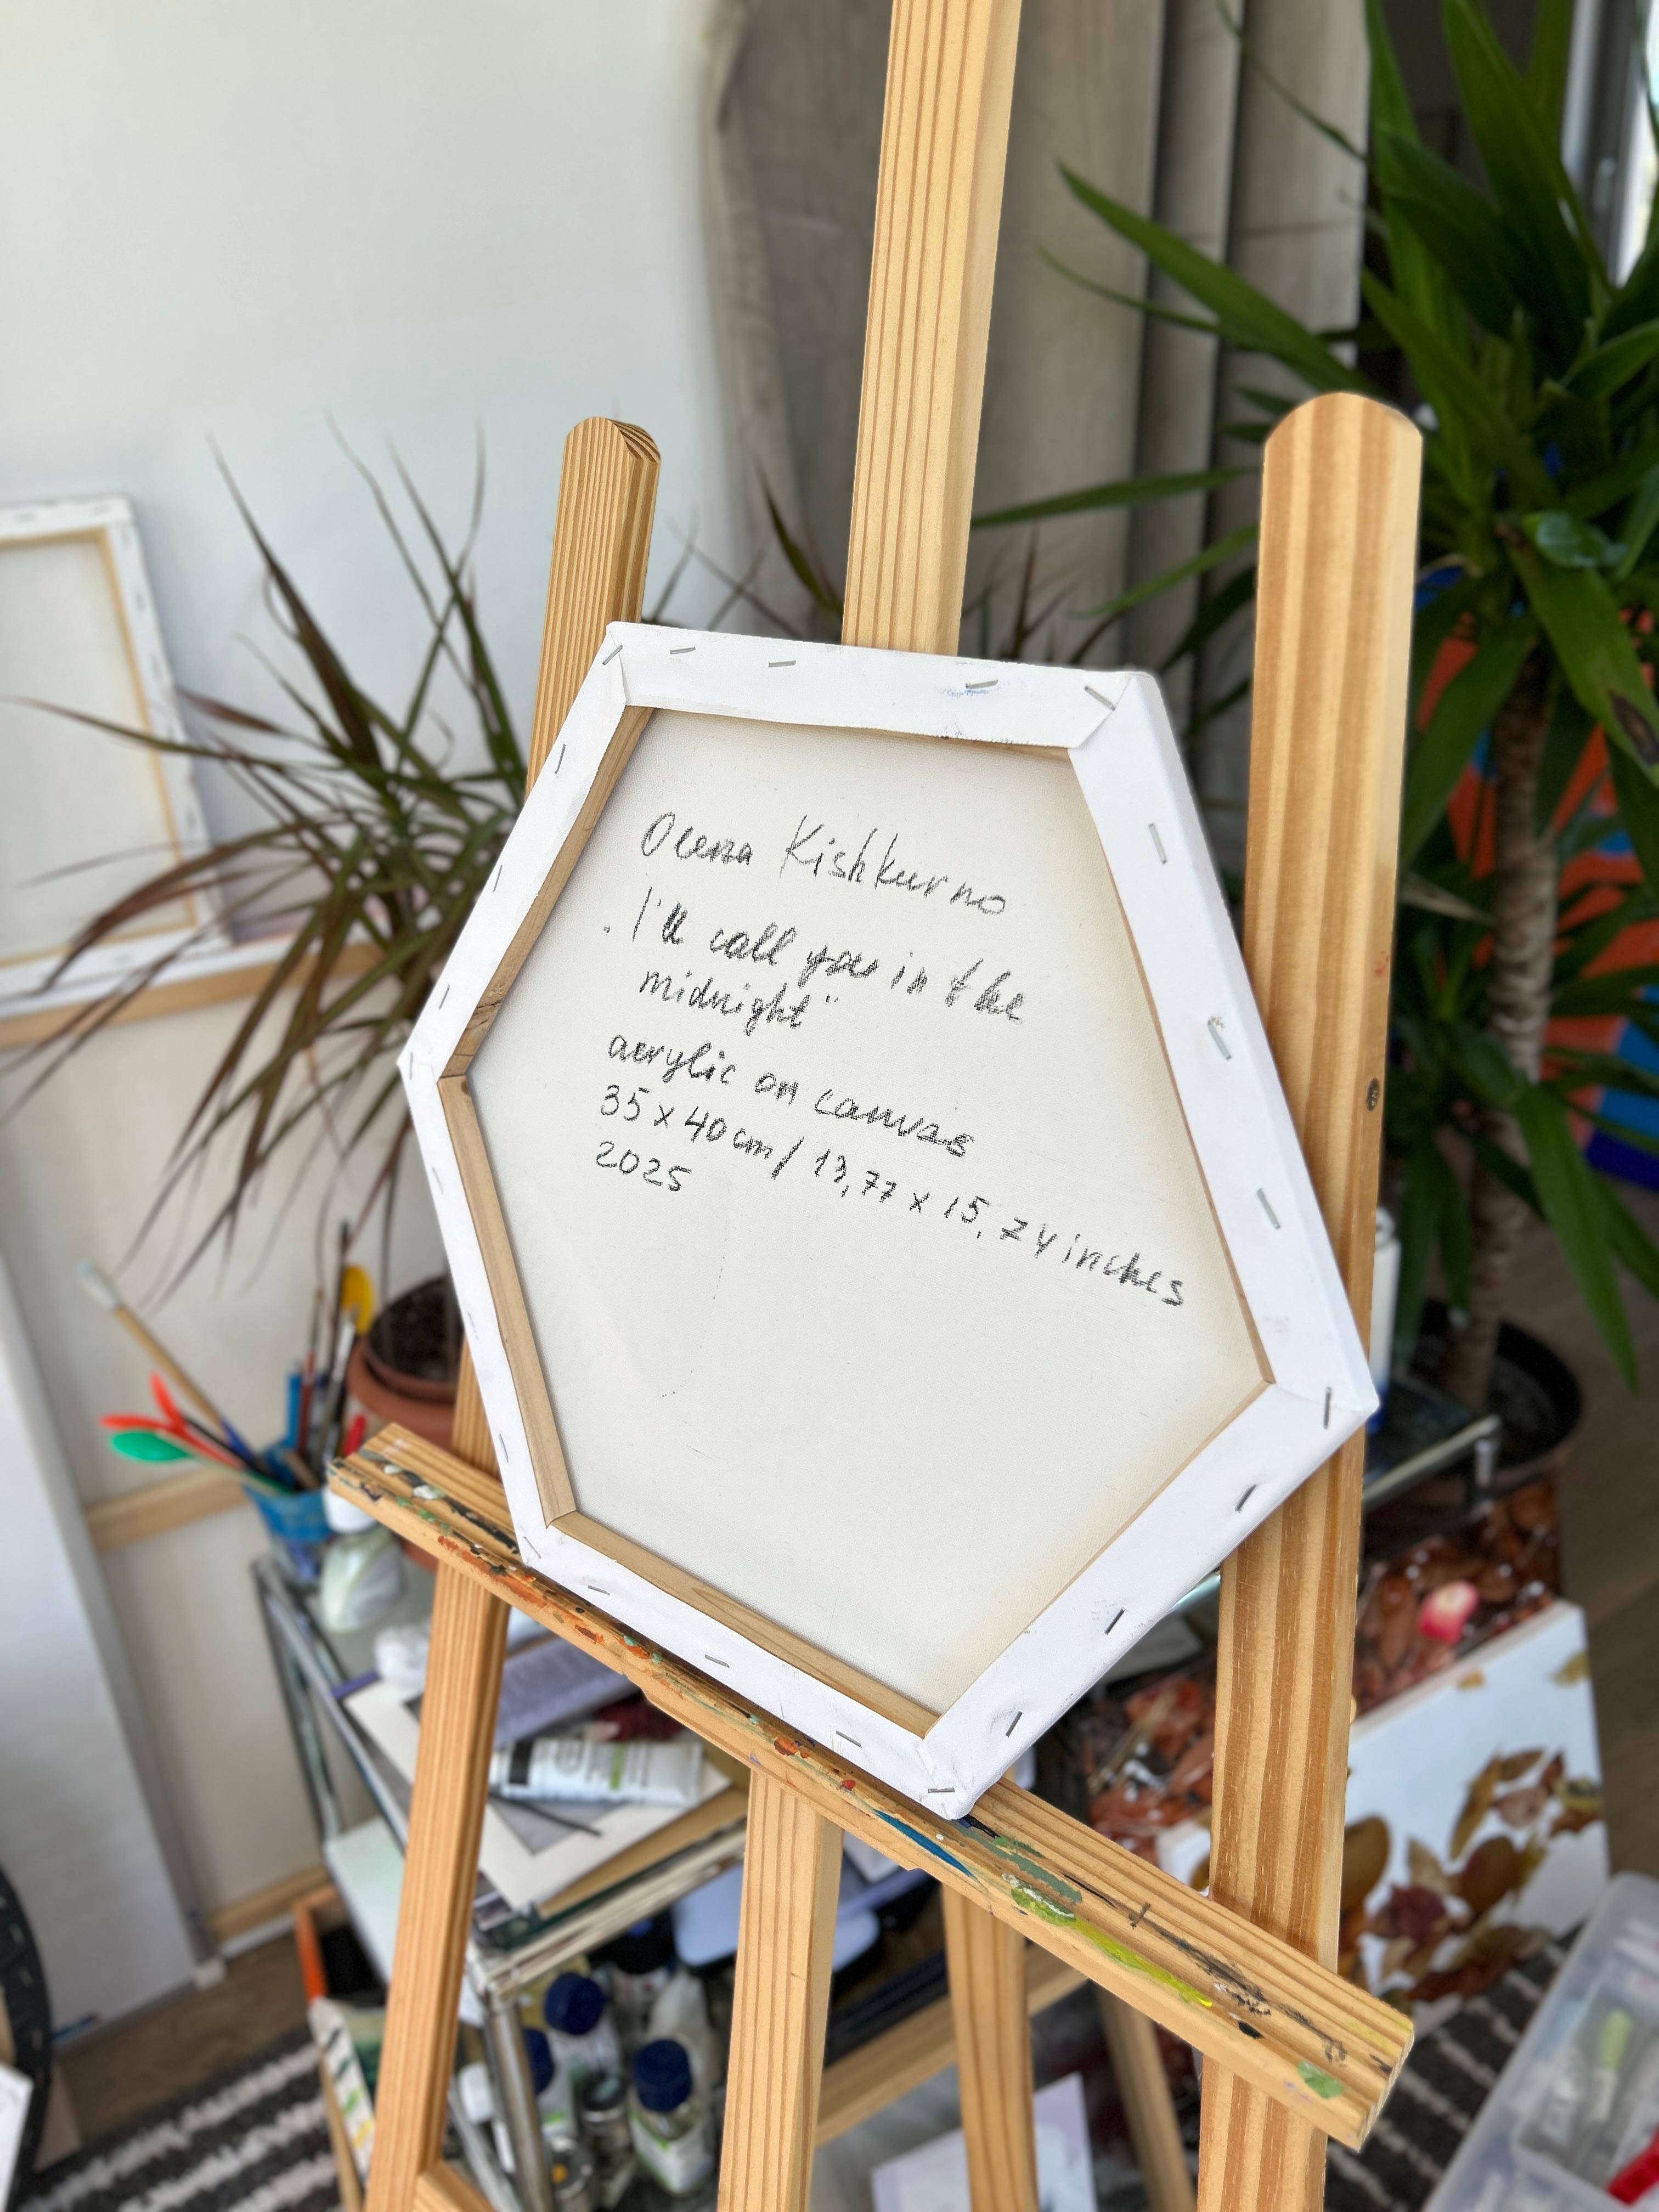 Olena Kishkurno
„I'll call you in the
midnight"
acrylic on canvas
35 x 40 cm / 13,77 x 15,74 inches
2025